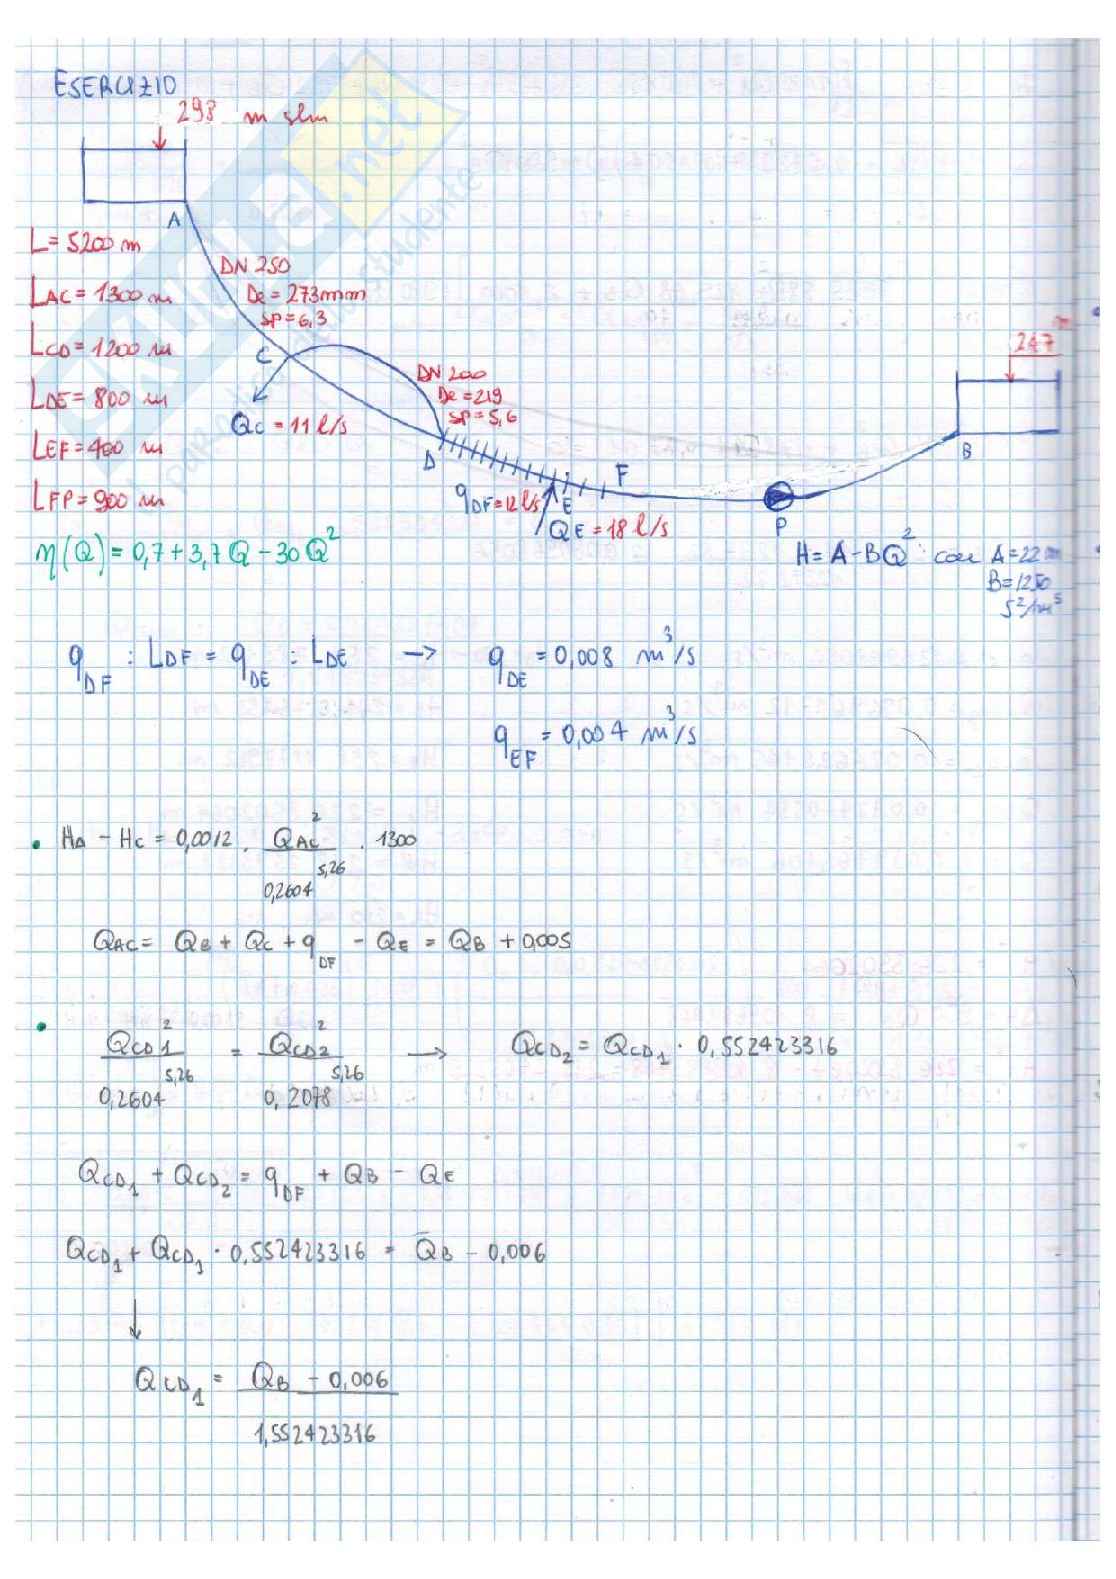 ESERCIZIO
298 m slm
A
L = 5200 m
DN 250
LAC = 1300 m
De = 273mm
SP = 6,3
LCD = 1200 m
C
247
DN 200
LDE = 800 m
De = 219
SP = 5,6
QC = 11 l/s
LEF = 400 m
D
F
B
LFP = 900 m
qDF = 12 l/s
E
QE = 18 l/s
P
η(Q) = 0,7 + 3,7 Q - 30 Q²
H = A - BQ² con A = 22 m
B = 1250
s²/m⁵
qDF : LDF = qDE : LDE → qDE = 0,008 m³/s
qEF = 0,004 m³/s
• HA - HC = 0,0012 · QAC² / 0,2604^5,26 · 1300
QAC = QB + QC + qDF - QE = QB + 0,005
• QCD1² / 0,2604^5,26 = QCD2² / 0,2078^5,26 → QCD2 = QCD1 · 0,552423316
QCD1 + QCD2 = qDF + QB - QE
QCD1 + QCD1 · 0,552423316 = QB - 0,006
↓
QCD1 = QB - 0,006 / 1,552423316